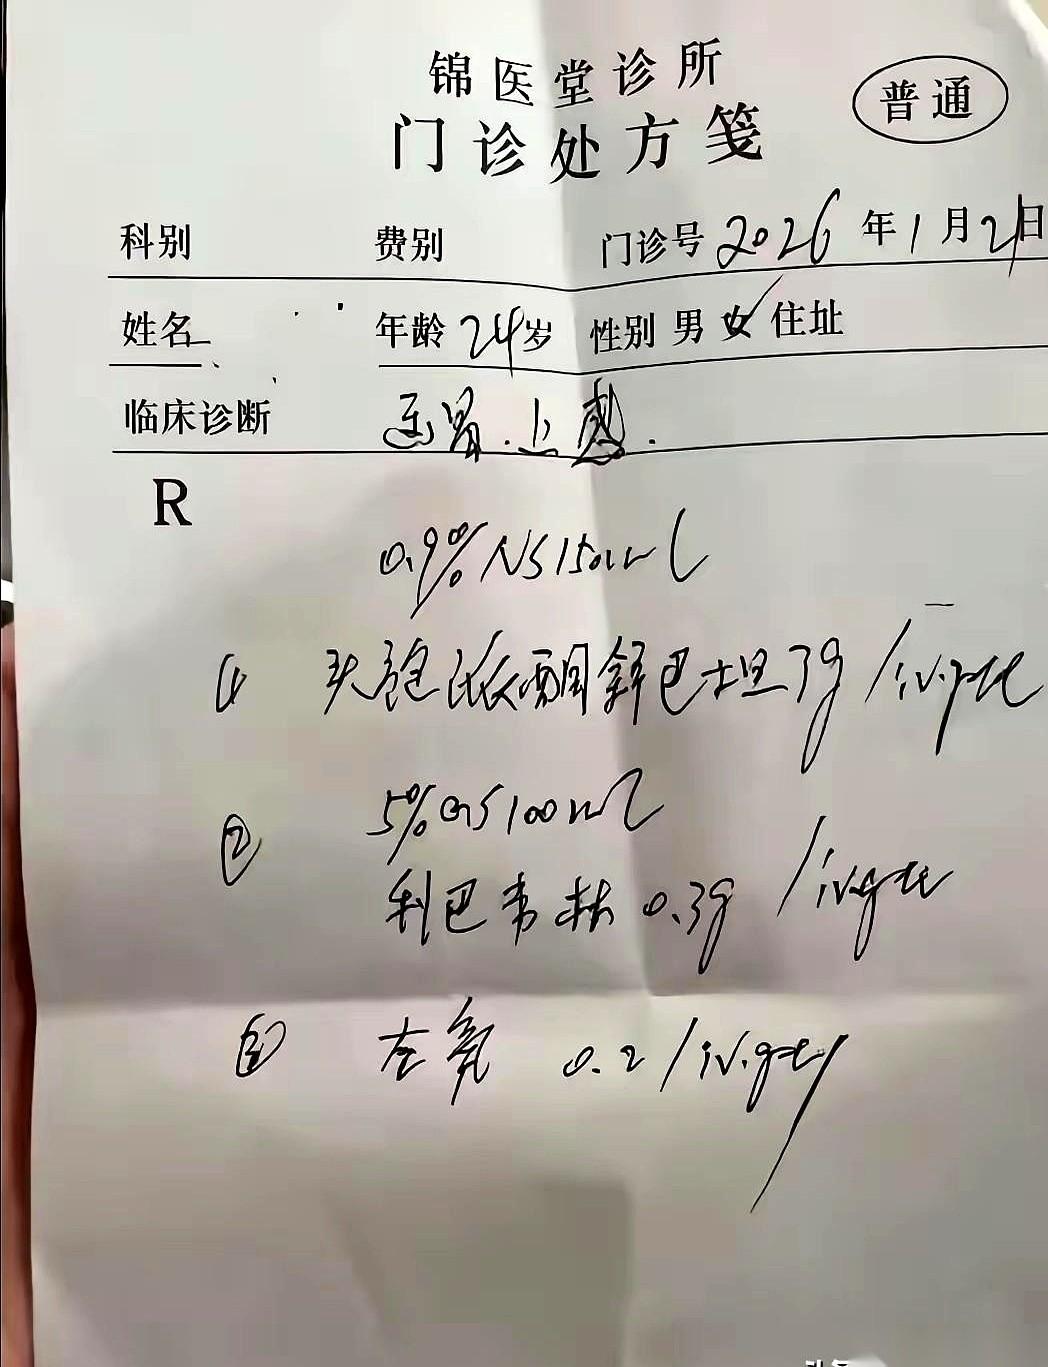 锦医堂诊所
普通
门诊处方笺
科别 费别 门诊号 2026年1月21日
姓名 年龄 24岁 性别 男 女✓ 住址
临床诊断 上感.
R
0.9% NS 150ml
① 头孢哌酮舒巴坦 3g / iv.gtt
5% GS 100ml
② 利巴韦林 0.3g / iv.gtt
③ 左氧 0.2 / iv.gtt